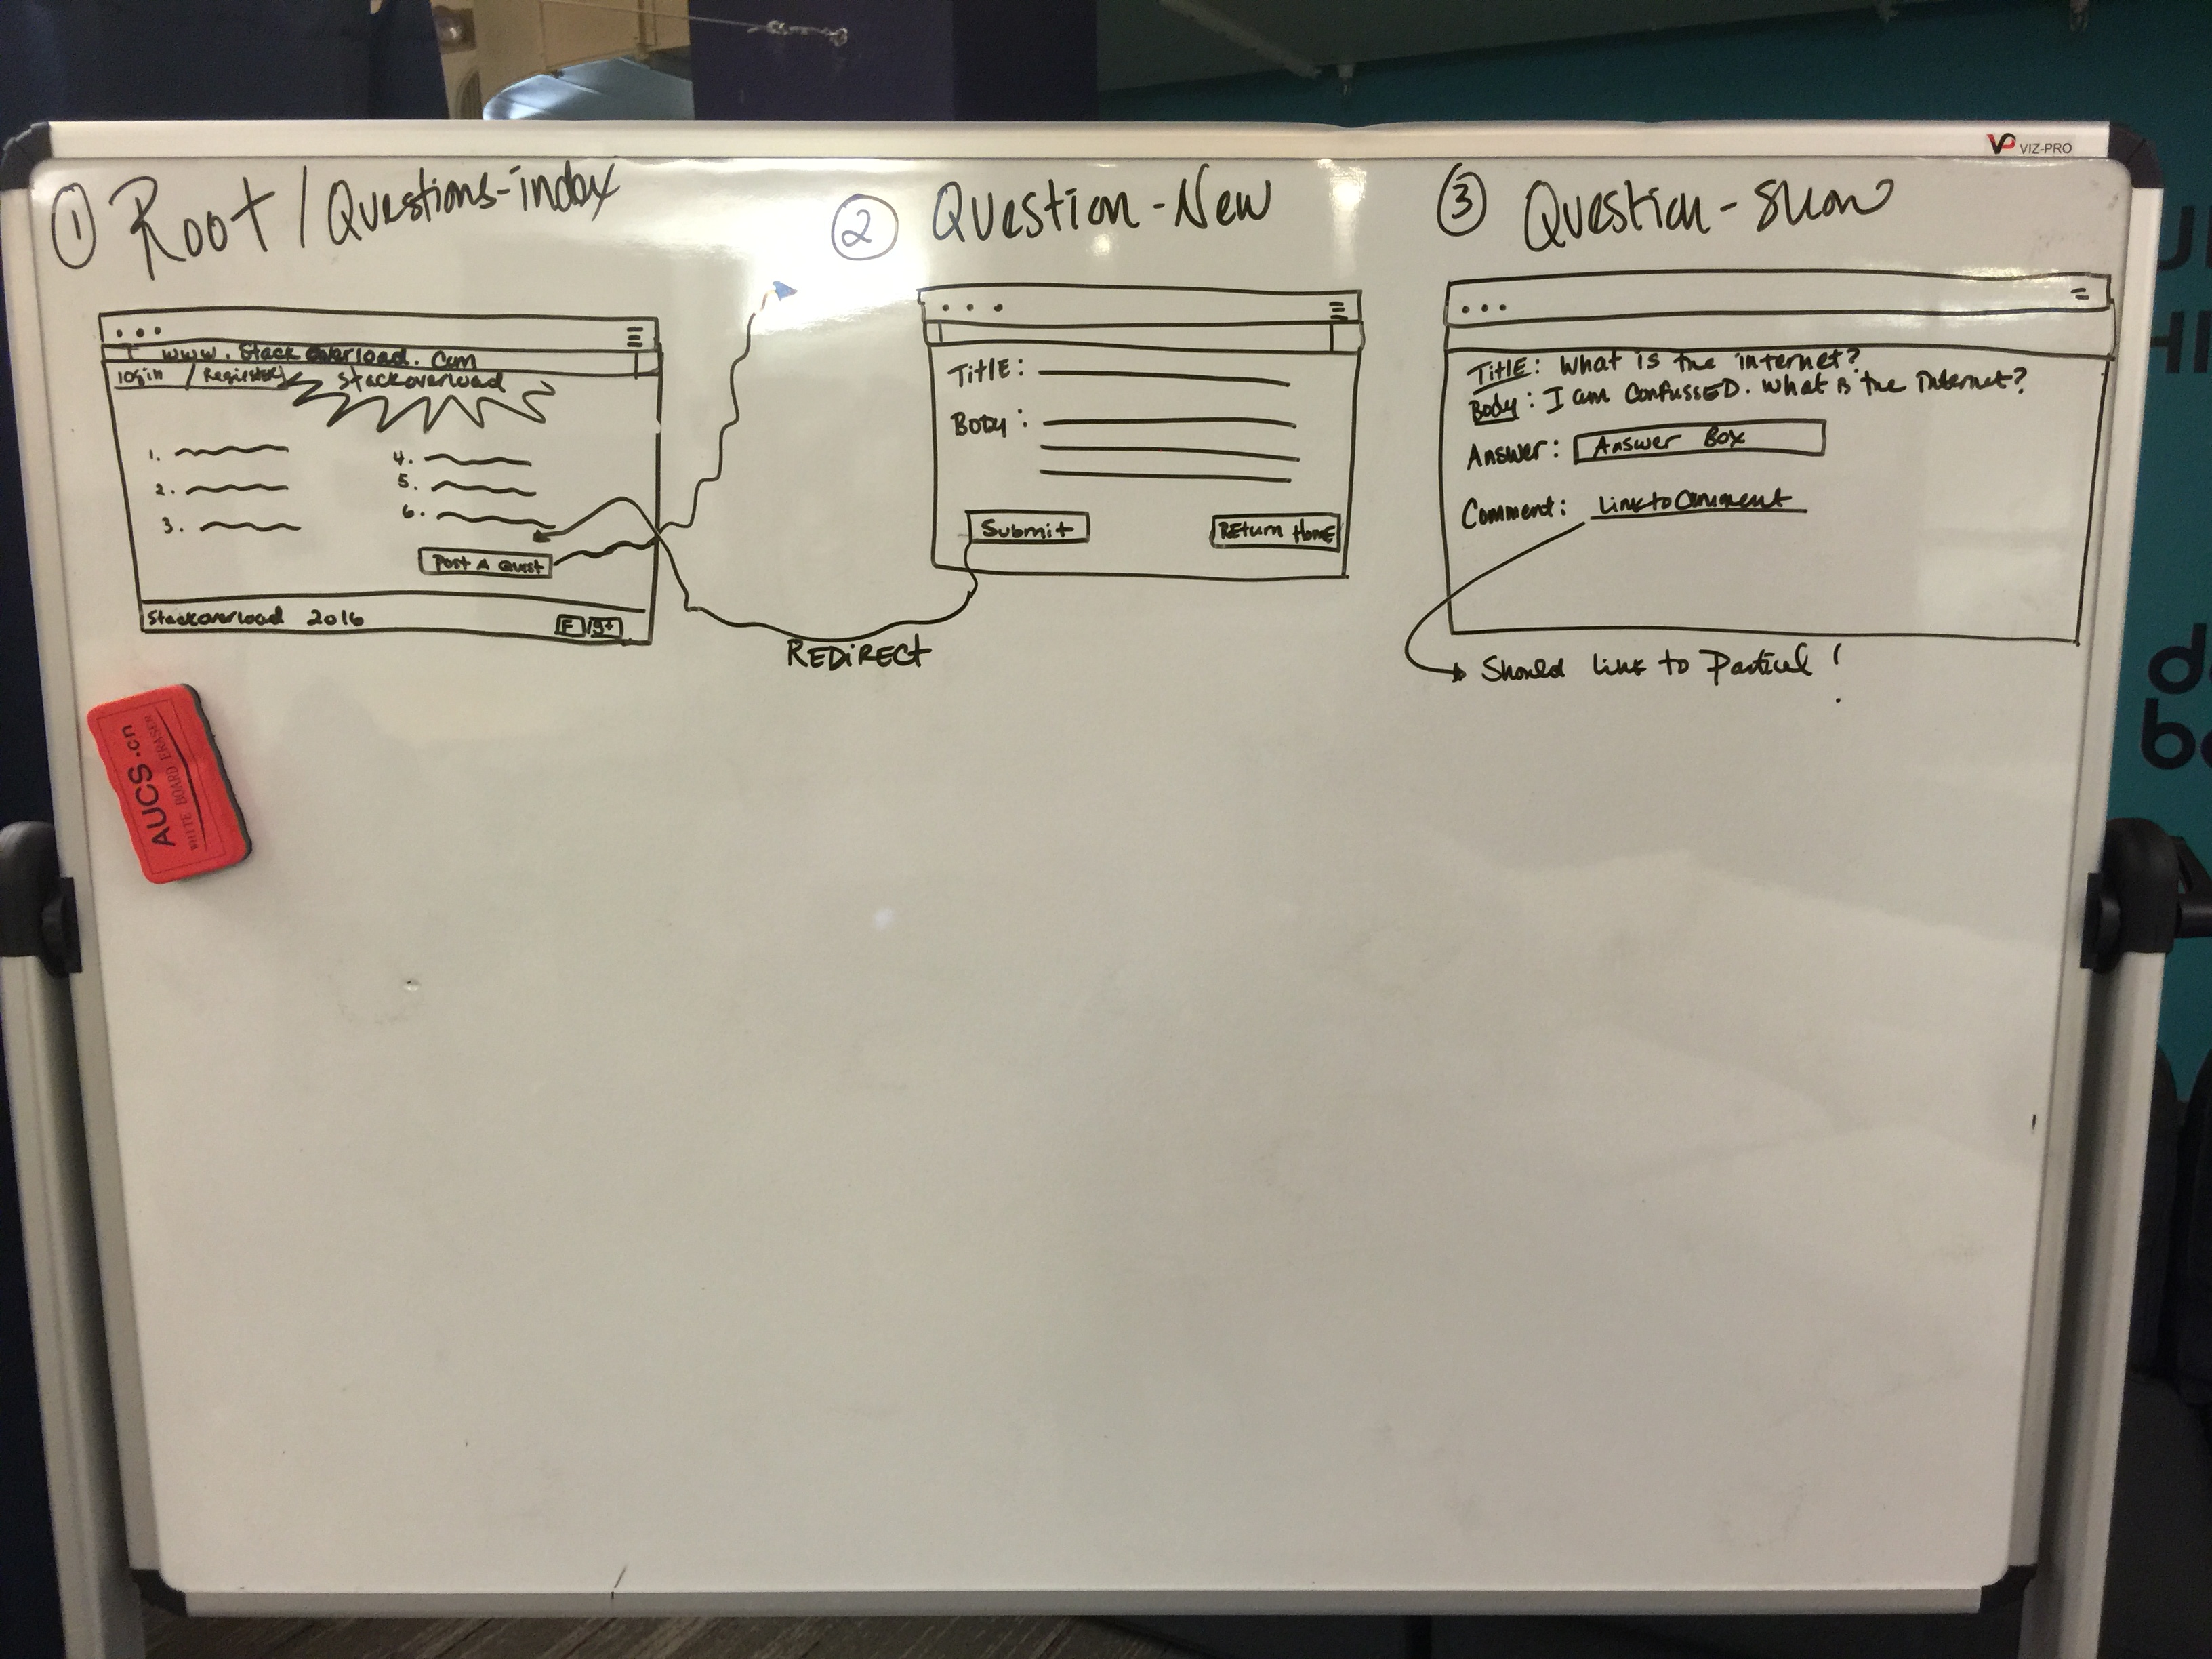 VP VIZ-PRO
① Root / Questions-index
www.Stackoverload.com
login / Register
Stackoverload
1.
2.
3.
4.
5.
6.
Post A Quest
Stackoverload 2016
F / g+
REDIRECT
② Question-New
TITLE:
BODY:
Submit
RETURN HOME
③ Question-Show
TITLE: What is the internet?
Body: I am ConfussED. What is the Internet?
Answer: Answer Box
Comment: Link to Comment
Should link to Partial!
AUCS.cn
WHITE BOARD ERASER
d
b